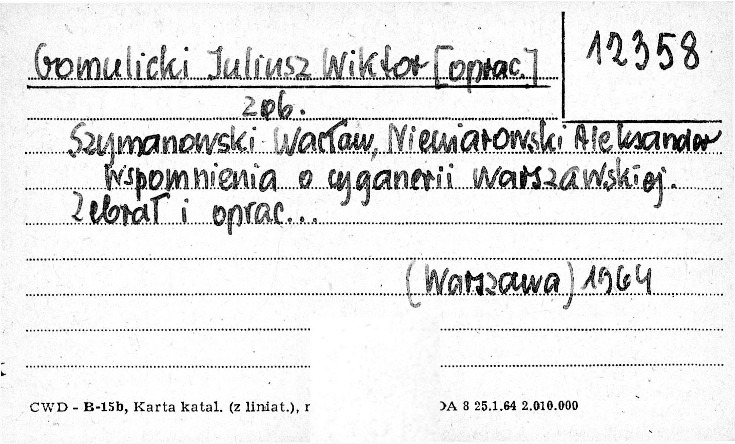 Gomulicki Juliusz Wiktor [oprac.]
12358
zob.
Szymanowski Wacław, Niewiarowski Aleksander
Wspomnienia o cyganerii warszawskiej.
Zebrał i oprac...
(Warszawa) 1964
CWD - B-15b, Karta katal. (z liniat.), r DA 8 25.1.64 2.010.000